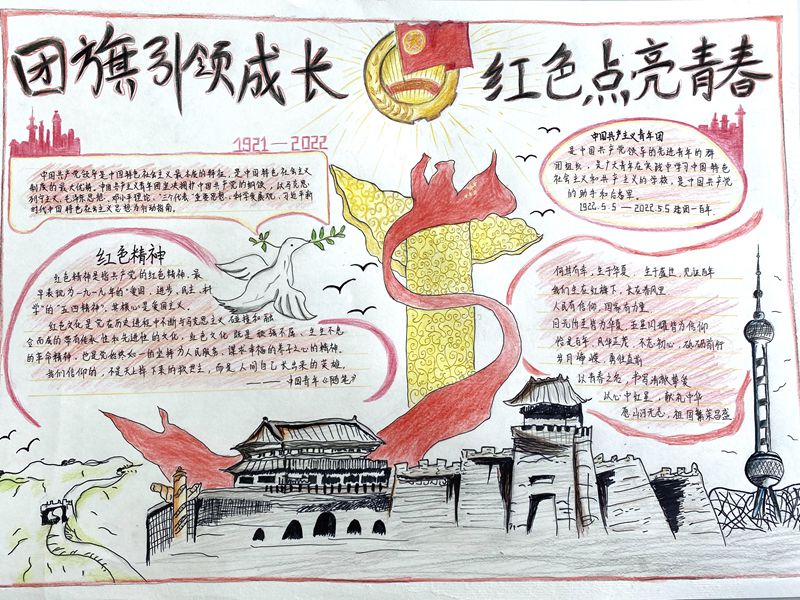 团旗引领成长
红色点亮青春
1921—2022
中国共产党领导是中国特色社会主义最本质的特征,是中国特色社会主义
制度的最大优势。中国共产主义青年团坚决拥护中国共产党的纲领,以马克思
列宁主义、毛泽东思想、邓小平理论、"三个代表"重要思想、科学发展观、习近平新
时代中国特色社会主义思想为行动指南。
中国共产主义青年团
是中国共产党领导的先进青年的群
团组织,是广大青年在实践中学习中国特色
社会主义和共产主义的学校,是中国共产党
的助手和后备军。
1922.5.5—2022.5.5 建团一百年.
红色精神
红色精神是指共产党的红色精神,最
早表现为一九一九年的"爱国、进步、民主、科
学"的"五四精神",其核心是爱国主义。
红色文化是党在历史进程中不断与马克思主义碰撞和融
合而成的带有传承性和先进性的文化,红色文化既是顽强不屈、生生不息
的革命精神,也是党始终如一的坚持为人民服务、谋求幸福的孝子之心的精神。
我们信仰的,不是天上掉下来的救世主,而是人间自己长出来的英雄。
——中国青年《随笔》
何其有幸,生于华夏,生于盛世,见证百年
我们生在红旗下,长在春风里
人民有信仰,国家有力量
目光所至皆为华夏,五星闪耀皆为信仰
恰是百年,风华正茂,不忘初心,砥砺前行
岁月峥嵘,勇往直前
以青春之名,书写清澈挚爱
以心中红星,献礼中华
愿山河无恙,祖国繁荣昌盛